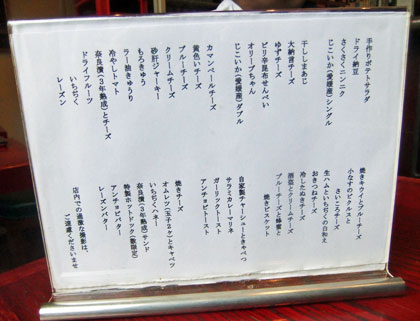 手作りポテトサラダ
ドライ納豆
さくさくニンニク
じこいか(愛媛産)シングル
干ししまあじ
大納言チーズ
ゆずチーズ
ピリ辛昆布せんべい
オリーブちゃん
じこいか(愛媛産)ダブル
カマンベールチーズ
黄色いチーズ
ブルーチーズ
クリームチーズ
砂肝ジャーキー
もろきゅう
ラー油きゅうり
冷やしトマト
奈良漬(3年熟成)とチーズ
ドライフルーツ
いちぢく
レーズン
焼きキウイとブルーチーズ
小なすのピクルスと
さいころチーズ
生ハムといちぢくの白和え
おきつねチーズ
冷したぬきチーズ
酒盗とクリームチーズ
ブルーチーズと蜂蜜と
焼きビスケット
自家製チャーシューときゃべつ
サラミカレーマリネ
ガーリックトースト
アンチョビトースト
焼きチーズ
オムレツ(玉子2ヶ)とキャベツ
いちぢくハネー
奈良漬(3年熟成)サンド
特製ホットドック(数限定)
アンチョビバター
レーズンバター
店内での過激な撮影は、
ご遠慮くださいませ